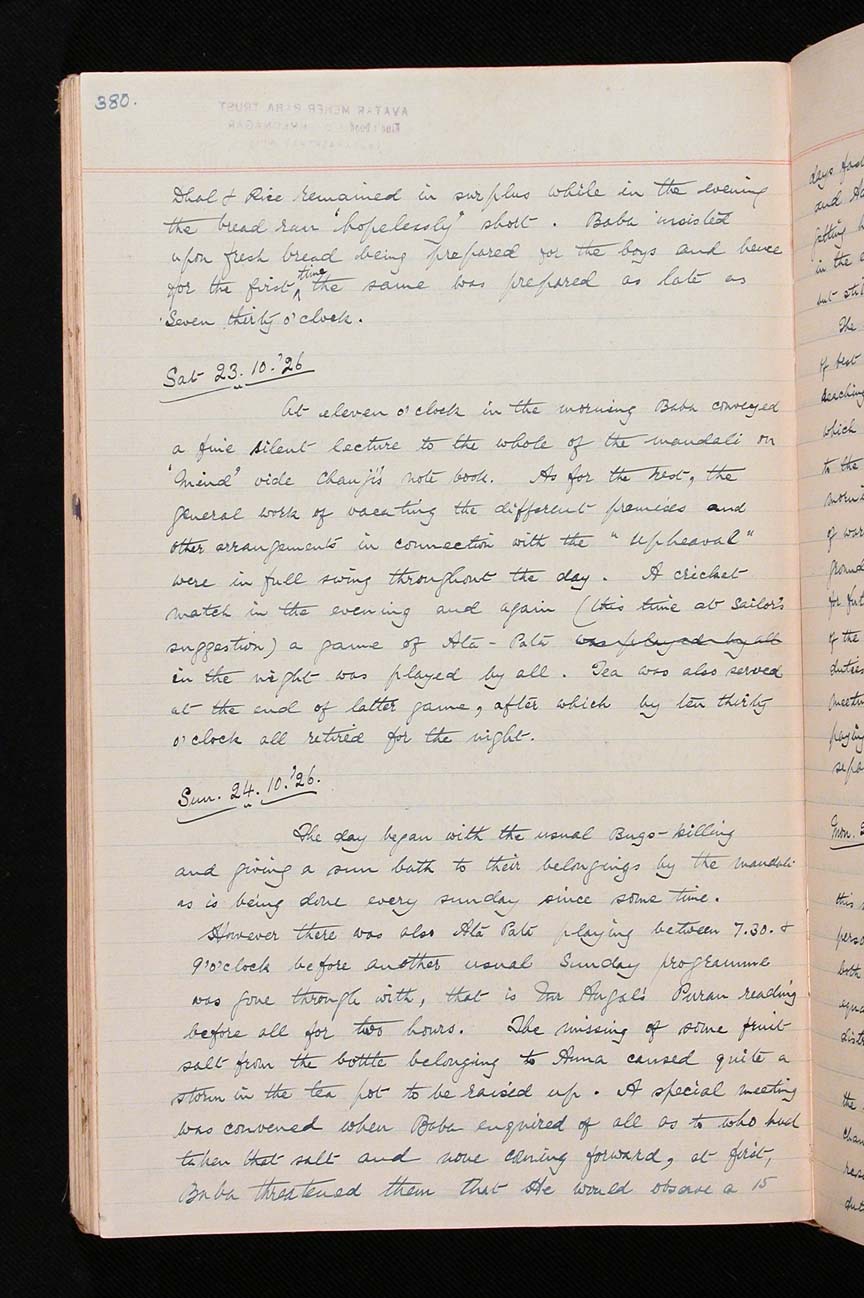 380.
AVATAR MEHER BABA TRUST
Dhal & Rice remained in surplus while in the evening
the bread ran "hopelessly" short. Baba insisted
upon fresh bread being prepared for the boys and hence
for the first time the same was prepared as late as
Seven thirty o'clock.
Sat 23.10.'26
At eleven o'clock in the morning Baba conveyed
a fine silent lecture to the whole of the mandali on
'Mind' vide Chanji's note book. As for the rest, the
general work of vacating the different premises and
other arrangements in connection with the "upheaval"
were in full swing throughout the day. A cricket
match in the evening and again (this time at Sailor's
suggestion) a game of Ata-Pata was played by all
in the night was played by all. Tea was also served
at the end of latter game, after which by ten thirty
o'clock all retired for the night.
Sun. 24.10.'26.
The day began with the usual Bugs-killing
and giving a sun bath to their belongings by the mandali
as is being done every sunday since some time.
However there was also Ata Pata playing between 7.30. &
9 o'clock before another usual Sunday programme
was gone through with, that is Mr Angal's Puran reading
before all for two hours. The missing of some fruit
salt from the bottle belonging to Anna caused quite a
storm in the tea pot to be raised up. A special meeting
was convened when Baba enquired of all as to who had
taken that salt and none coming forward, at first,
Baba threatened them that He would observe a 15
and
in the
The
of
which
to the
of the
duties
paying
Mon.
this
both
the